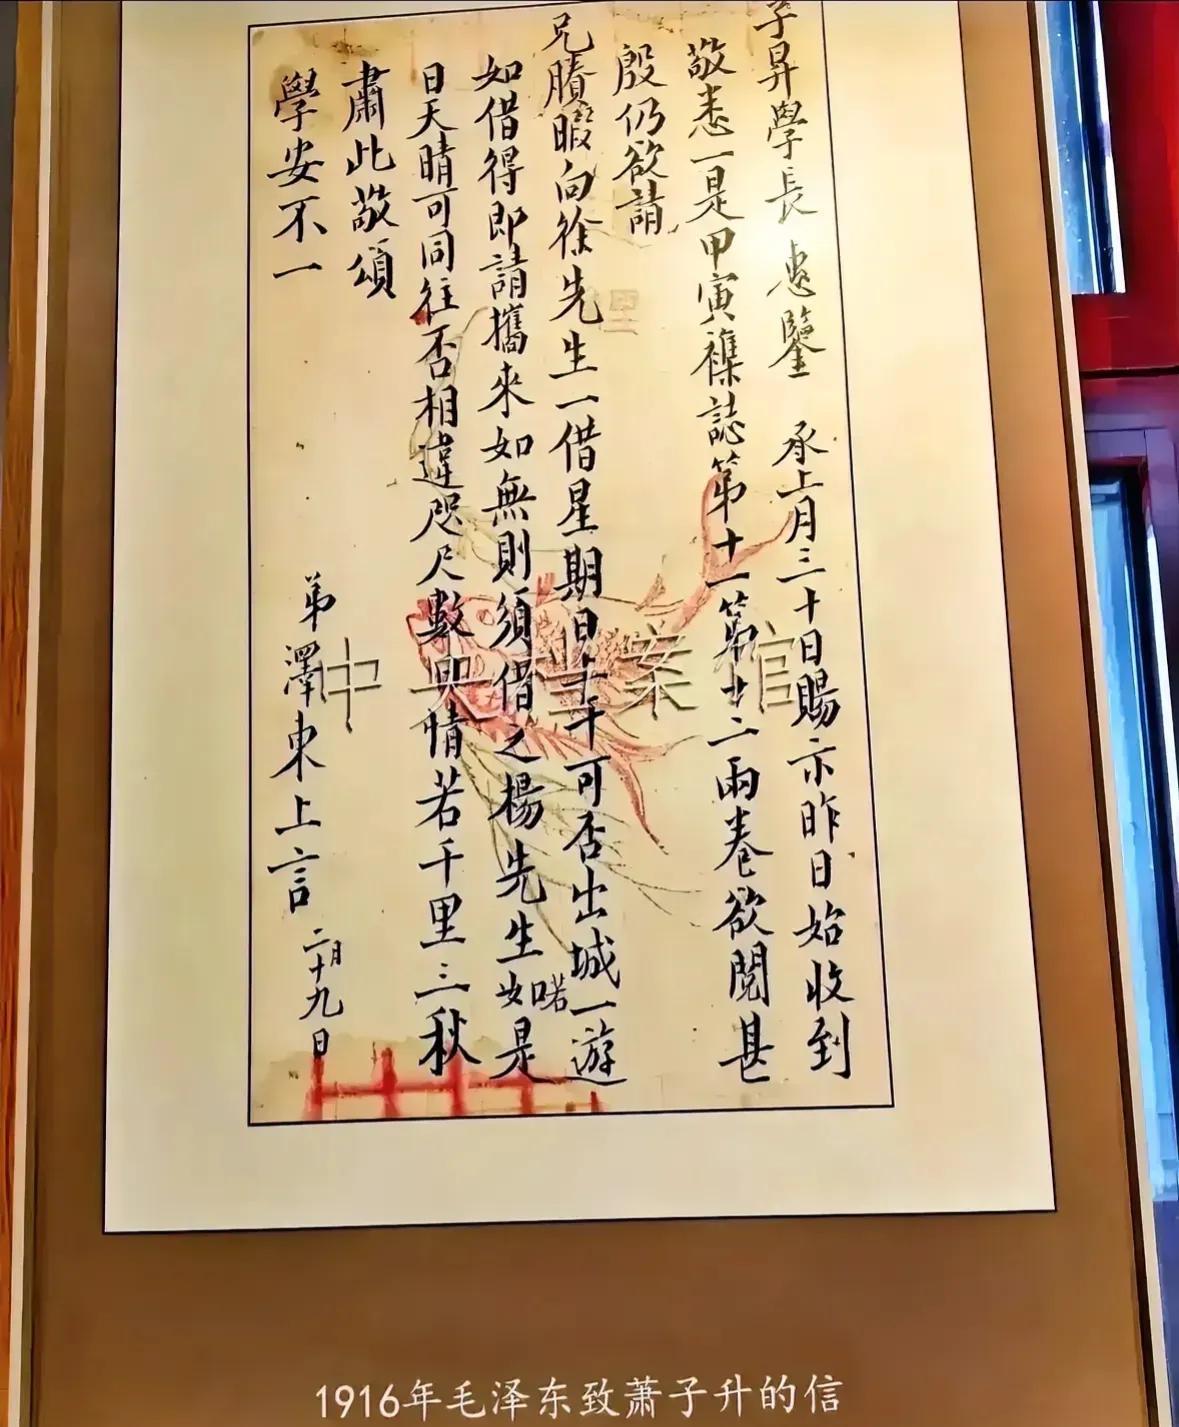 子昇學長 惠鑒 承上月三十日賜示昨日始收到
敬悉一是甲寅襍誌第十一第十二兩卷欲閱甚
殷仍欲請
兄賸暇向徐先生一借星期日上午可否出城一遊
如借得即請攜來如無則須借之楊先生處如是
日天晴可同往否相違咫尺數日情若千里三秋
肅此敬頌
學安不一
弟澤東上言 二月十九日
中央档案馆
1916年毛泽东致萧子升的信